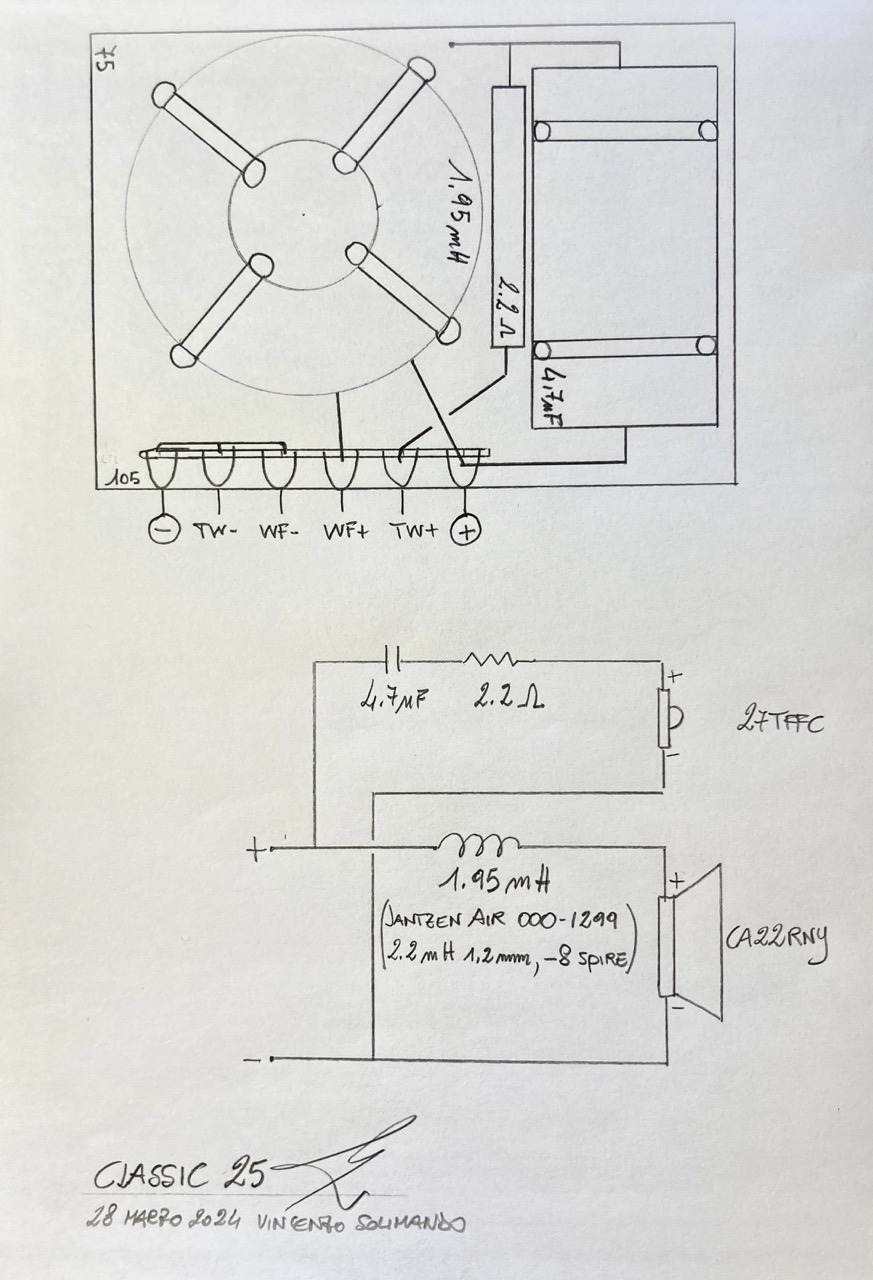 75
1.95mH
2.2Ω
4.7µF
105
- TW- WF- WF+ TW+ +
4.7µF 2.2Ω
+
27TFFC
-
+
1.95mH
+
(JANTZEN AIR 000-1299
2.2mH 1,2mm, -8 SPIRE)
CA22RNY
-
-
CLASSIC 25
28 MARZO 2024 VINCENZO SOLIMANDO